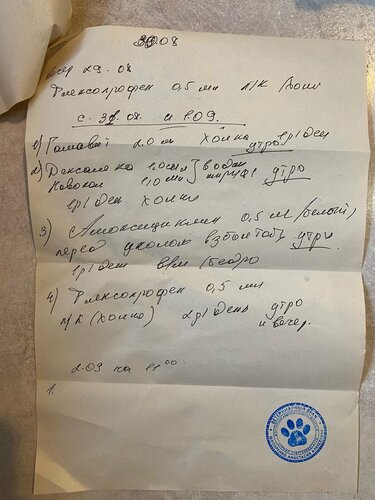 30.08
вечер 29.08
Флексопрофен 0,5 мл п/к
с 31.08. и 1.09.
1) Гамавит 2.0 мл холка 1р/день
утро
2) Дексаметазон 1.0 мл } в одном шприце утро
Новокаин 1,0 мл
1р/день холка
3) Амоксициклин 0.5 мл (белый,
перед уколом взболтать) утро
1р/день в/м (бедро
4) Флексопрофен 0,5 мл
п/к (холка) 2р/день утро
и вечер.
2.09 на 11 00
1.